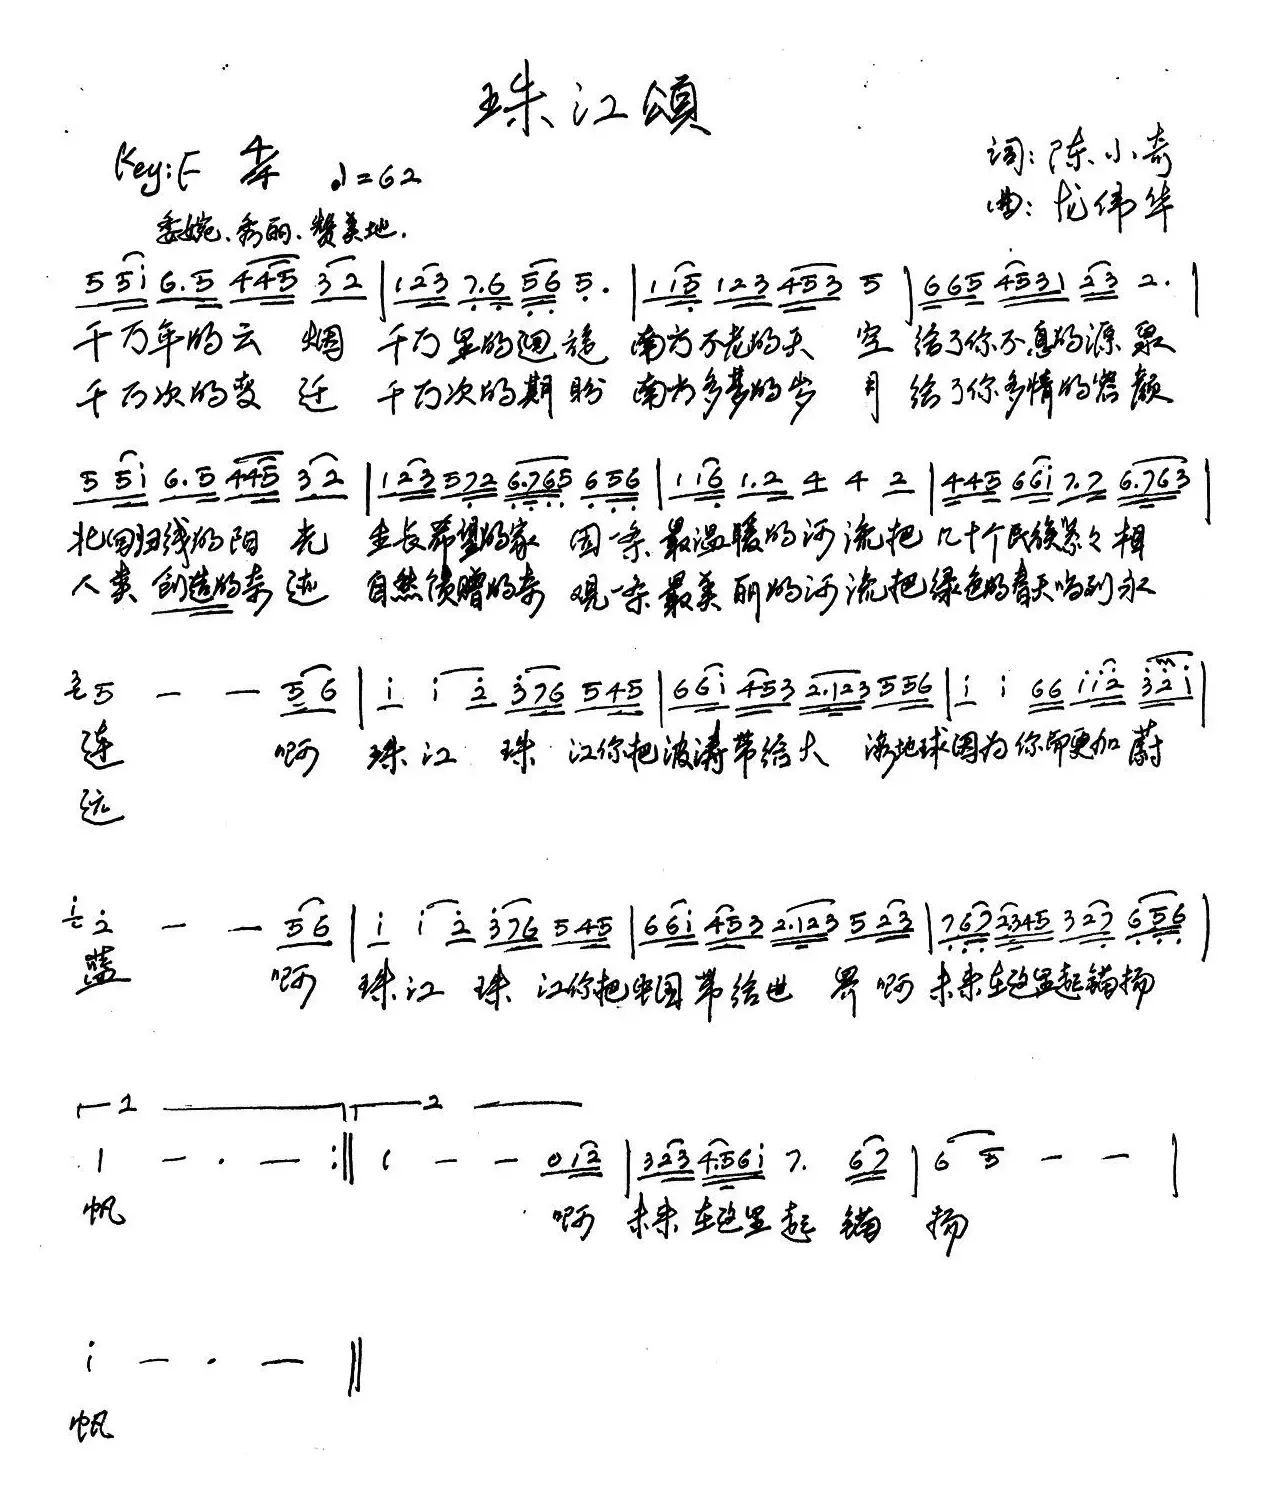 珠江頌
Key:F 4/4 ♩=62
词:陈小奇
曲:龙伟华
委婉、秀丽、赞美地.
5 5 i 6.5 4 4 5 3 2 | 1 2 3 7.6 5 6 5. | 1 1 5 1 2 3 4 5 3 5 | 6 6 5 4 5 3 1 2 3 2. |
千万年的云 烟 千万里的迴旋 南方不老的天 空 给了你不息的源泉
千万次的变 迁 千万次的期盼 南方多梦的岁 月 给了你多情的容颜
5 5 i 6.5 4 4 5 3 2 | 1 2 3 5 7 2 6.7 6 5 6 5 6 | 1 1 6 1.2 4 4 2 | 4 4 5 6 6 i 7.7 6.7 6 3 |
北回归线的阳 光 生长希望的家 园一条最温暖的河流把几十个民族紧々相
人类创造的奇迹 自然馈赠的奇 观一条最美丽的河流把绿色的春天唱到永
3 5 — — 5 6 | i i 2 3 7 6 5 4 5 | 6 6 i 4 5 3 2.1 2 3 5 5 6 | i i 6 6 i i 2 3 2 i |
连 啊 珠江 珠 江你把波涛带给大 海地球因为你而更加蔚
远
i 2 — — 5 6 | i i 2 3 7 6 5 4 5 | 6 6 i 4 5 3 2.1 2 3 5 2 3 | 7 6 7 2 3 4 5 3 2 7 6 5 6 |
蓝 啊 珠江 珠 江你把中国带给世 界啊 未来在这里起锚扬
1 2
1 — · — :‖ 1 — — 0 i 2 | 3 2 3 4.5 6 i 7. 6 7 | 6 5 — — |
帆 啊 未来在这里起 锚 扬
i — · — ‖
帆